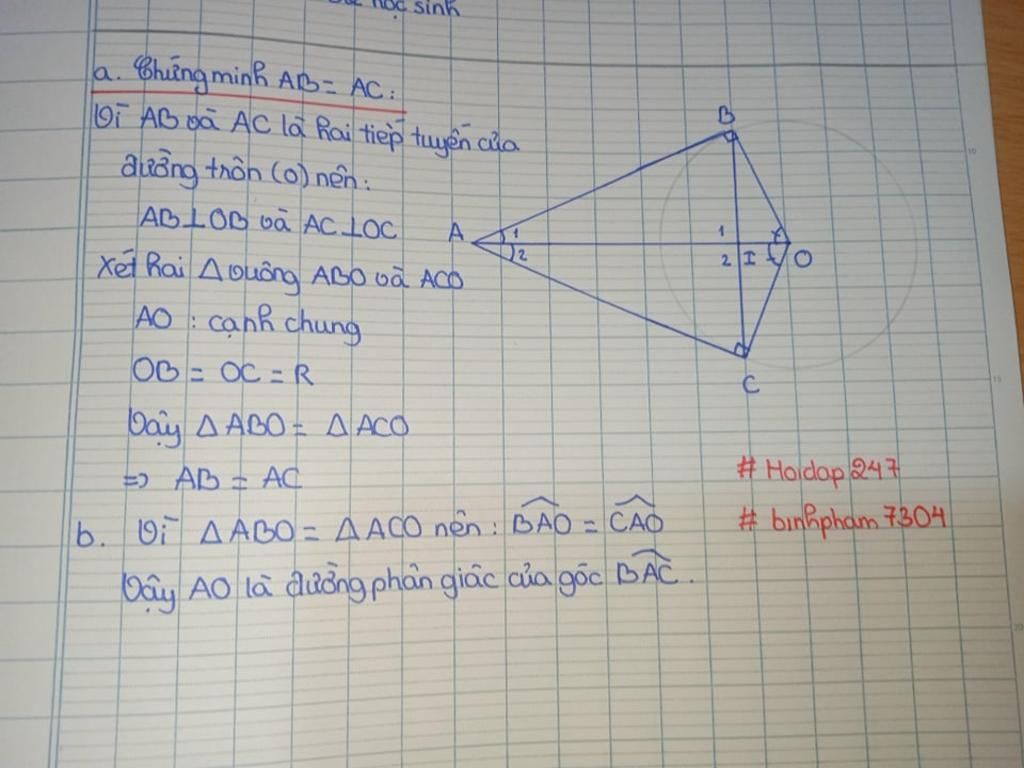 học sinh
a. Chứng minh AB = AC:
Vì AB và AC là hai tiếp tuyến của
đường tròn (O) nên:
AB⊥OB và AC⊥OC
Xét hai Δ vuông ABO và ACO
AO : cạnh chung
OB = OC = R
Vậy Δ ABO = Δ ACO
=> AB = AC
b. Vì Δ ABO = Δ ACO nên : \widehat{BAO} = \widehat{CAO}
Vậy AO là đường phân giác của góc \widehat{BAC}.
B
A
1
2
1
2
I
O
C
# Hoidap247
# binhpham7304